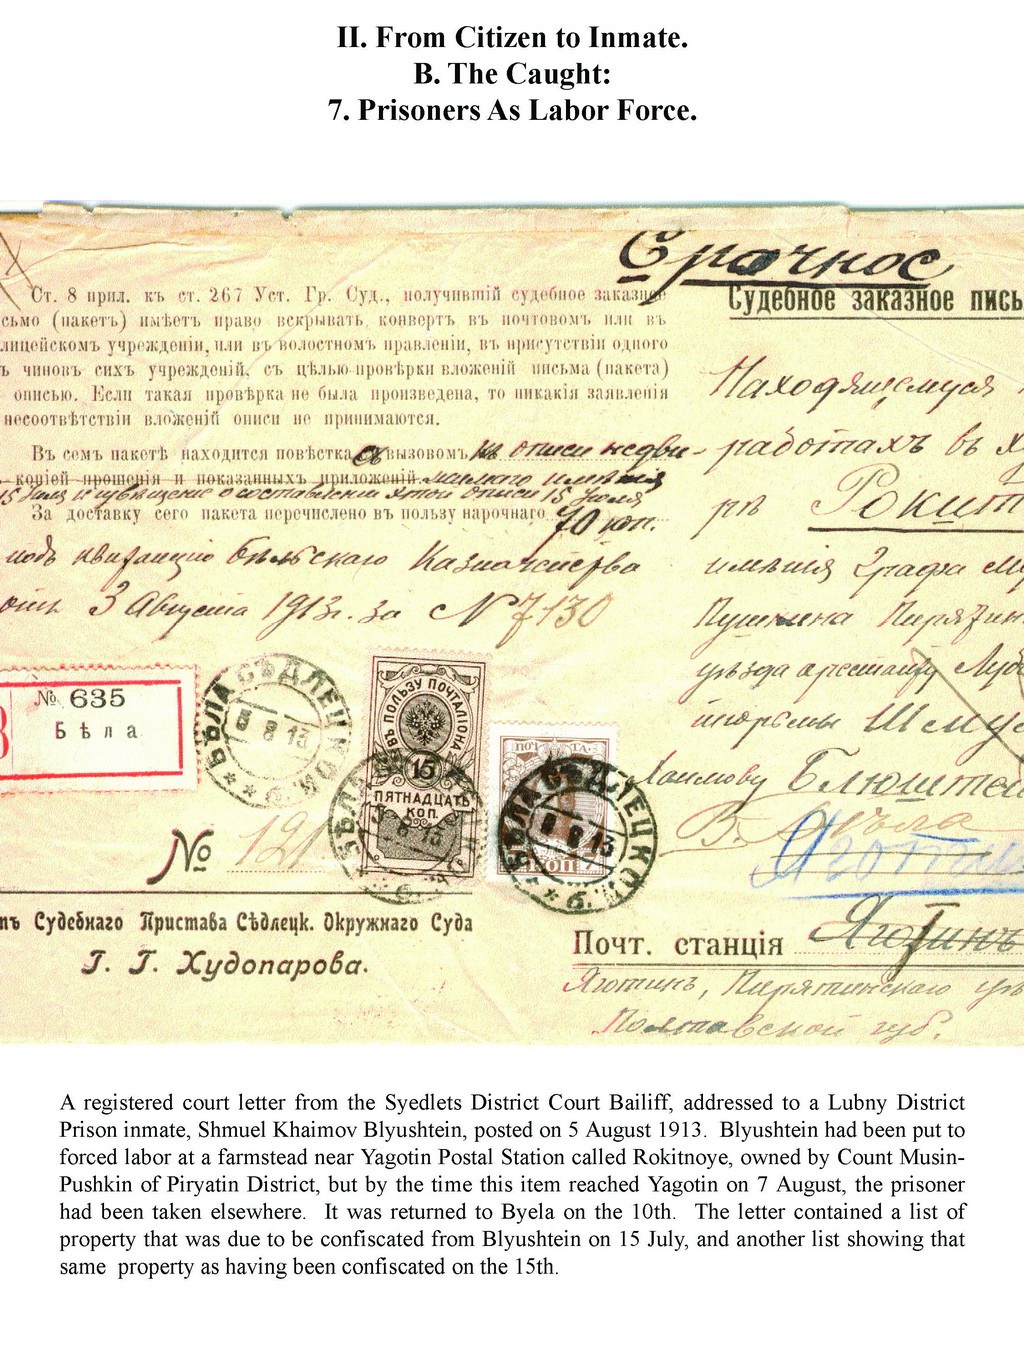 II. From Citizen to Inmate.
B. The Caught:
7. Prisoners As Labor Force.
Срочное
Судебное заказное пись
Ст. 8 прил. къ ст. 267 Уст. Гр. Суд., получившій судебное заказное
сьмо (пакетъ) имѣетъ право вскрывать конвертъ въ почтовомъ или въ
лицейскомъ учрежденіи, или въ волостномъ правленіи, въ присутствіи одного
ъ чиновъ сихъ учрежденій, съ цѣлью провѣрки вложеній письма (пакета)
описью. Если такая провѣрка не была произведена, то никакія заявленія
несоотвѣтствіи вложеній описи не принимаются.
Въ семъ пакетѣ находится повѣстка съ вызовомъ къ описи недви-
копіей прошенія и показанныхъ приложеній маго имѣнія
15 Іюля и извѣщеніе о составленіи этой описи 15 Іюля
За доставку сего пакета перечислено въ пользу нарочнаго 70 коп.
подъ квитанцію Бѣльскаго Казначейства
отъ 3 Августа 1913г. за № 7130
Находящемуся
работахъ въ х
рѣ Рокит
имѣнія Графа Му
Пушкина Пирятин
уѣзда арестанту Луб
тюрьмы Шмул
Хаимову Блюштей
В. Бѣла
Яготин
№ 635
Бѣла
БѢЛА СѢДЛЕЦКОЙ
8 13
СБОРЪ ВЪ ПОЛЬЗУ ПОЧТАЛІОНА
15
ПЯТНАДЦАТЬ
КОП.
ПОЧТА
КОП
БѢЛА СѢДЛЕЦКОЙ
8 13
№ 121
тъ Судебнаго Пристава Сѣдлецк. Окружнаго Суда
Г. Г. Худопарова.
Почт. станція Яготинъ
Яготинъ, Пирятинскаго уѣ
Полтавской губ.
A registered court letter from the Syedlets District Court Bailiff, addressed to a Lubny District
Prison inmate, Shmuel Khaimov Blyushtein, posted on 5 August 1913. Blyushtein had been put to
forced labor at a farmstead near Yagotin Postal Station called Rokitnoye, owned by Count Musin-
Pushkin of Piryatin District, but by the time this item reached Yagotin on 7 August, the prisoner
had been taken elsewhere. It was returned to Byela on the 10th. The letter contained a list of
property that was due to be confiscated from Blyushtein on 15 July, and another list showing that
same property as having been confiscated on the 15th.